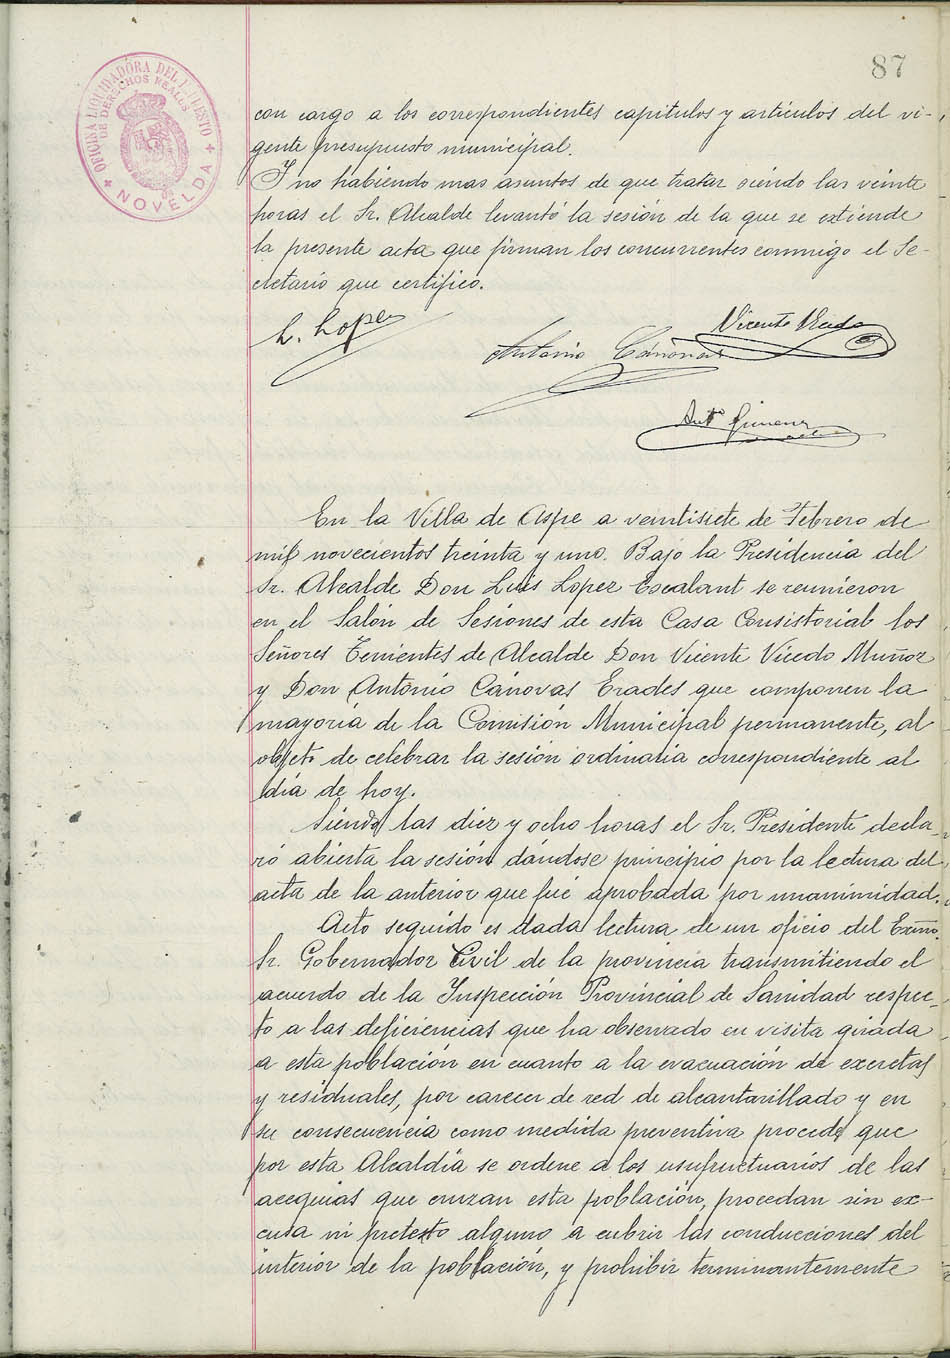 87
OFICINA LIQUIDADORA DEL IMPUESTO
DE DERECHOS REALES
DE
NOVELDA
con cargo a los correspondientes capitulos y articulos del vi-
gente presupuesto municipal.
Y no habiendo mas asuntos de que tratar siendo las veinte
horas el Sr. Alcalde levantó la sesión de la que se extiende
la presente acta que firman los concurrentes conmigo el Se-
cretario que certifico.
L. Lopez
Vicente Vicedo
Antonio Cánovas
Antº Gimenez
En la Villa de Aspe a veintisiete de Febrero de
mil novecientos treinta y uno. Bajo la Presidencia del
Sr. Alcalde Don Luis Lopez Escalant se reunieron
en el Salón de Sesiones de esta Casa Consistorial los
Señores Tenientes de Alcalde Don Vicente Vicedo Muñoz
y Don Antonio Cánovas Erades que componen la
mayoria de la Comisión Municipal permanente, al
objeto de celebrar la sesion ordinaria correspondiente al
dia de hoy.
Siendo las diez y ocho horas el Sr. Presidente decla-
ró abierta la sesión dándose principio por la lectura del
acta de la anterior que fué aprobada por unanimidad.
Acto seguido es dada lectura de un oficio del Exmo.
Sr. Gobernador Civil de la provincia transmitiendo el
acuerdo de la Inspección Provincial de Sanidad respec-
to a las deficiencias que ha observado en visita girada
a esta población en cuanto a la evacuación de excretas
y residuales, por carecer de red de alcantarillado y en
su consecuencia como medida preventiva procede que
por esta Alcaldía se ordene a los usufructuarios de las
acequias que cruzan esta población, procedan sin ex-
cusa ni pretexto alguno a cubrir las conducciones del
interior de la población, y prohibir terminantemente